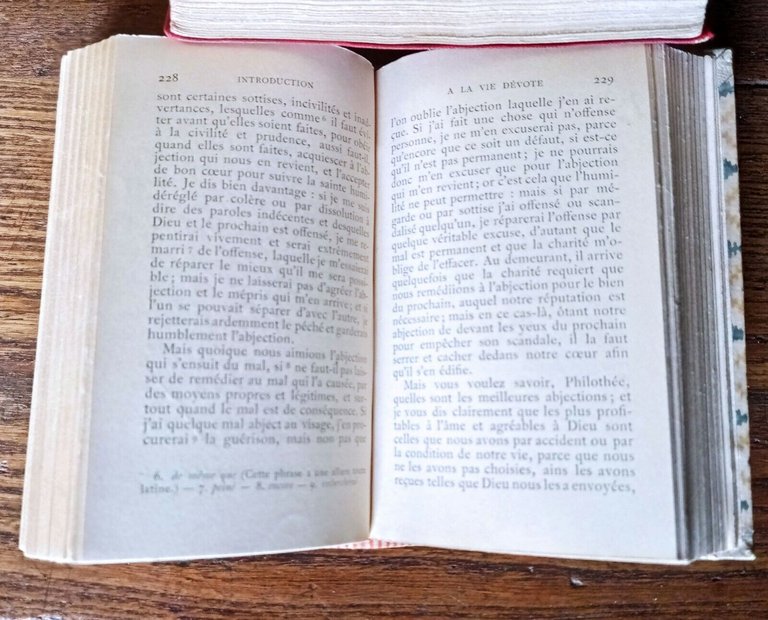 228
INTRODUCTION
sont certaines sottises, incivilités et inad-
vertances, lesquelles comme 6 il faut évi-
ter avant qu'elles soient faites, pour obéir
à la civilité et prudence, aussi faut-il,
quand elles sont faites, acquiescer à l'ab-
jection qui nous en revient, et l'accepter
de bon cœur pour suivre la sainte humi-
lité. Je dis bien davantage : si je me suis
déréglé par colère ou par dissolution à
dire des paroles indécentes et desquelles
Dieu et le prochain est offensé, je me re-
pentirai vivement et serai extrêmement
marri 7 de l'offense, laquelle je m'essaierai
de réparer le mieux qu'il me sera possi-
ble ; mais je ne laisserai pas d'agréer l'ab-
jection et le mépris qui m'en arrive ; et si
l'un se pouvait séparer d'avec l'autre, je
rejetterais ardemment le péché et garderais
humblement l'abjection.
Mais quoique nous aimions l'abjection
qui s'ensuit du mal, si 8 ne faut-il pas lais-
ser de remédier au mal qui l'a causée, par
des moyens propres et légitimes, et sur-
tout quand le mal est de conséquence. Si
j'ai quelque mal abject au visage, j'en pro-
curerai 9 la guérison, mais non pas que
6. de même que (Cette phrase a une allure toute
latine.) — 7. peiné — 8. encore — 9. rechercherai
A LA VIE DÉVOTE
229
l'on oublie l'abjection laquelle j'en ai re-
çue. Si j'ai fait une chose qui n'offense
personne, je ne m'en excuserai pas, parce
qu'encore que ce soit un défaut, si est-ce
qu'il n'est pas permanent ; je ne pourrais
donc m'en excuser que pour l'abjection
qui m'en revient ; or c'est cela que l'humi-
lité ne peut permettre : mais si par mé-
garde ou par sottise j'ai offensé ou scan-
dalisé quelqu'un, je réparerai l'offense par
quelque véritable excuse, d'autant que le
mal est permanent et que la charité m'o-
blige de l'effacer. Au demeurant, il arrive
quelquefois que la charité requiert que
nous remédiions à l'abjection pour le bien
du prochain, auquel notre réputation est
nécessaire ; mais en ce cas-là, ôtant notre
abjection de devant les yeux du prochain
pour empêcher son scandale, il la faut
serrer et cacher dedans notre cœur afin
qu'il s'en édifie.
Mais vous voulez savoir, Philothée,
quelles sont les meilleures abjections ; et
je vous dis clairement que les plus profi-
tables à l'âme et agréables à Dieu sont
celles que nous avons par accident ou par
la condition de notre vie, parce que nous
ne les avons pas choisies, ains les avons
reçues telles que Dieu nous les a envoyées,